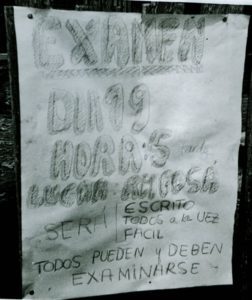 EXAMEN
DIA 19
HORA: 5
LUGAR
SERÁ
ESCRITO
TODOS a la VEZ
FACIL
TODOS PUEDEN y DEBEN
EXAMINARSE